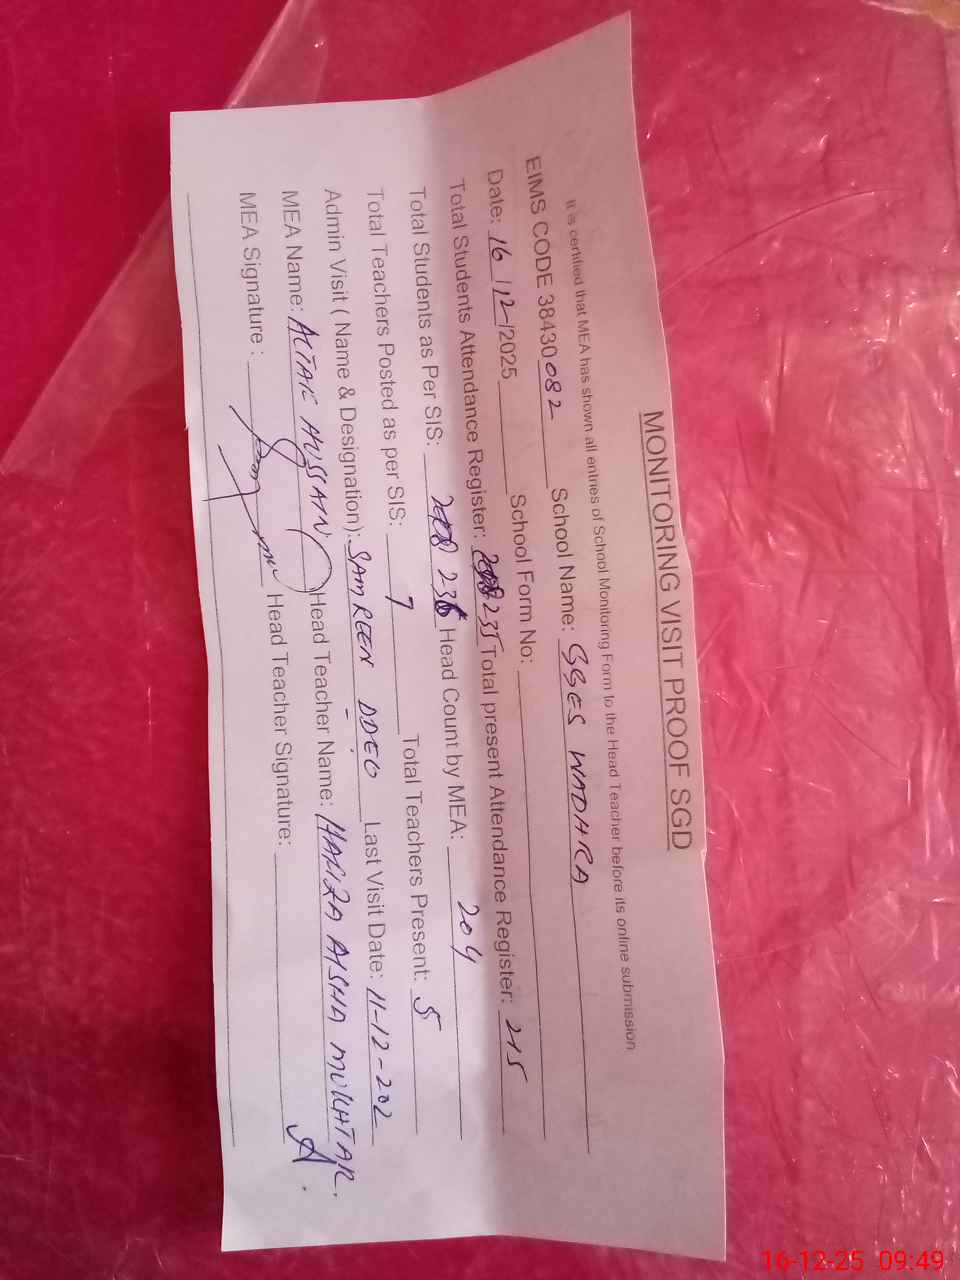 MONITORING VISIT PROOF SGD
It is certified that MEA has shown all entries of School Monitoring Form to the Head Teacher before its online submission
EIMS CODE 38430082 School Name: GGES WADHRA
Date: 16/12/2025 School Form No:
Total Students Attendance Register: 235 Total present Attendance Register: 215
Total Students as Per SIS: 236 Head Count by MEA: 204
Total Teachers Posted as per SIS: 7 Total Teachers Present: 5
Admin Visit ( Name & Designation): SAMREEN DDEO Last Visit Date: 11-12-202
MEA Name: ALTAF HUSSAIN Head Teacher Name: HAFIZA AISHA MUKHTAR.
MEA Signature : Head Teacher Signature:
16-12-25 09:49